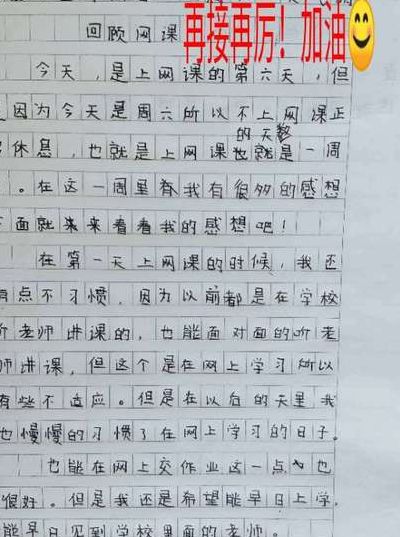 再接再厉！加油
回顾网课
今天，是上网课的第六天，但
因为今天是周六所以不上网课正
休息，也就是上网课也就是一周
的天数
。在这一周里我有很多的感想
面就来来看看我的感想吧！
在第一天上网课的时候，我还
有点不习惯，因为以前都是在学校
听老师讲课的，也能面对面的听老
师讲课，但这个是在网上学习所以
有些不适应。但是在以后的天里我
也慢慢的习惯了在网上学习的日子。
也能在网上交作业这一点也
很好。但是我还是希望能早日上学，
能早日见到学校里面的老师。